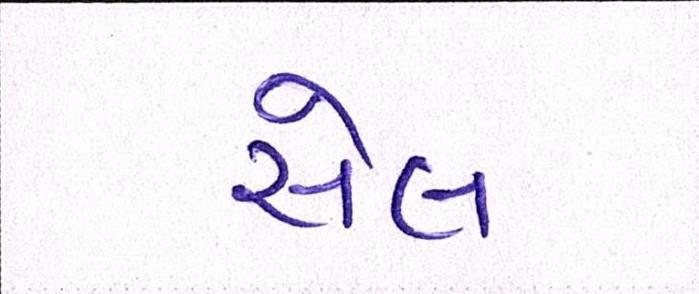 સેલ